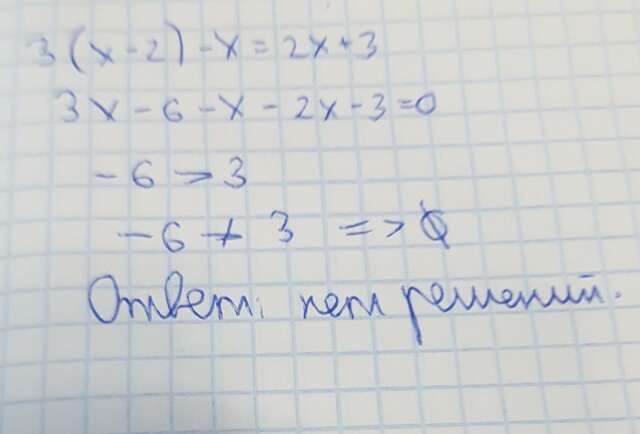 3(x-2)-x=2x+3
3x-6-x-2x-3=0
-6=3
-6≠3 => ∅
Ответ: нет решений.